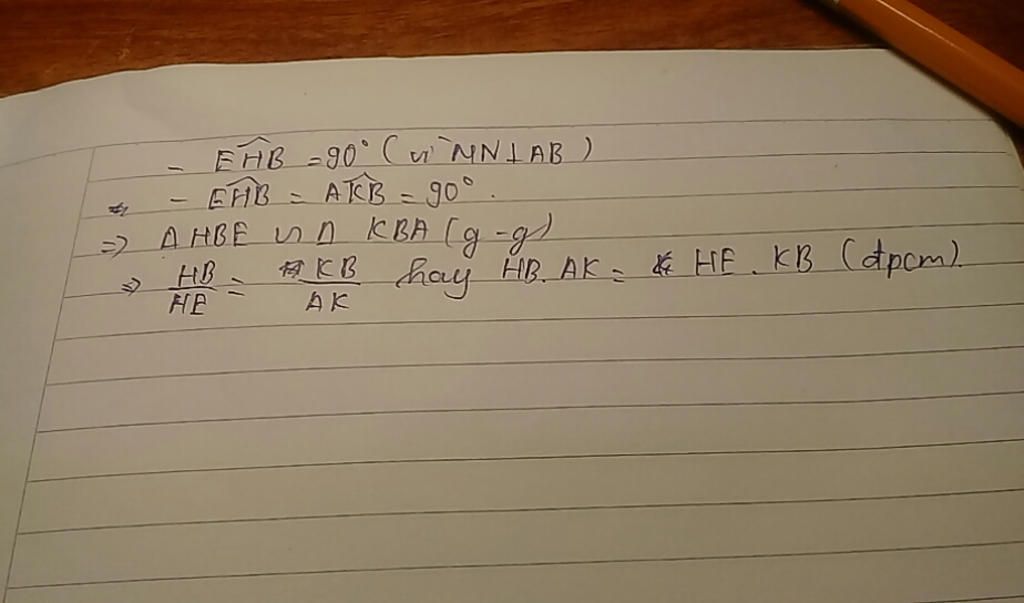 - EĤB = 90° (vì MN ⊥ AB)
- EĤB = AK̂B = 90°.
=> Δ HBE ∽ Δ KBA (g-g)
=> HB/HE = KB/AK hay HB. AK = HE. KB (đpcm).